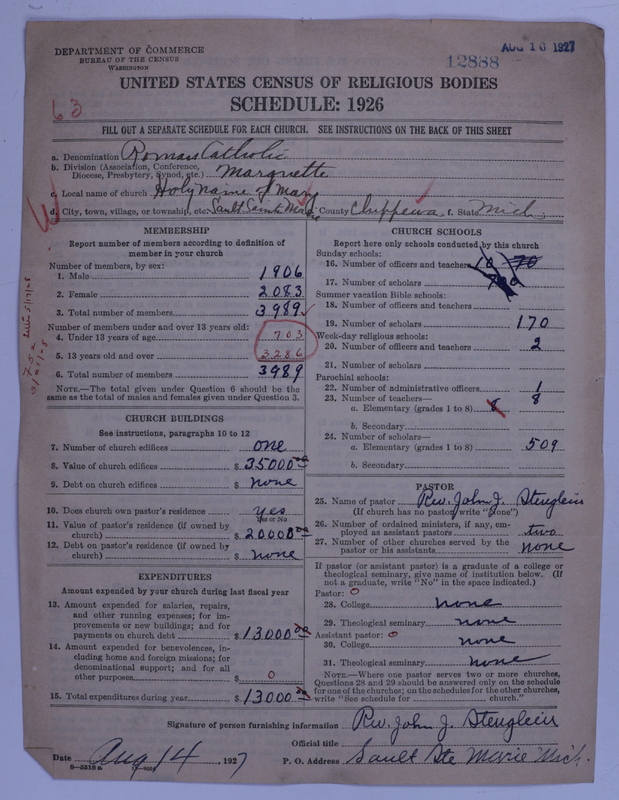 DEPARTMENT OF COMMERCE
BUREAU OF THE CENSUS
WASHINGTON
12888
AUG 16 1927
UNITED STATES CENSUS OF RELIGIOUS BODIES
SCHEDULE: 1926
63
FILL OUT A SEPARATE SCHEDULE FOR EACH CHURCH. SEE INSTRUCTIONS ON THE BACK OF THIS SHEET
a. Denomination Roman Catholic
b. Division (Association, Conference, Diocese, Presbytery, Synod, etc.) Marquette
c. Local name of church Holy name of Mary
d. City, town, village, or township, etc. Sault Sainte Marie County Chippewa f. State Mich
MEMBERSHIP
Report number of members according to definition of
member in your church
Number of members, by sex:
1. Male 1906
2. Female 2083
3. Total number of members 3989
Number of members under and over 13 years old:
4. Under 13 years of age 703
5. 13 years old and over 3286
6. Total number of members 3989
NOTE.—The total given under Question 6 should be the
same as the total of males and females given under Question 3.
CHURCH BUILDINGS
See instructions, paragraphs 10 to 12
7. Number of church edifices one
8. Value of church edifices $ 35000 00
9. Debt on church edifices $ none
10. Does church own pastor's residence yes
Yes or No
11. Value of pastor's residence (if owned by
church) $ 20000 00
12. Debt on pastor's residence (if owned by
church) $ none
EXPENDITURES
Amount expended by your church during last fiscal year
13. Amount expended for salaries, repairs,
and other running expenses; for im-
provements or new buildings; and for
payments on church debt $ 13000 00
14. Amount expended for benevolences, in-
cluding home and foreign missions; for
denominational support; and for all
other purposes $ 0
15. Total expenditures during year $ 13000 00
CHURCH SCHOOLS
Report here only schools conducted by this church
Sunday schools:
16. Number of officers and teachers 10 70
17. Number of scholars 700
Summer vacation Bible schools:
18. Number of officers and teachers
19. Number of scholars 170
Week-day religious schools:
20. Number of officers and teachers 2
21. Number of scholars
Parochial schools:
22. Number of administrative officers 1
23. Number of teachers—
a. Elementary (grades 1 to 8) 8 8
b. Secondary
24. Number of scholars—
a. Elementary (grades 1 to 8) 509
b. Secondary
PASTOR
25. Name of pastor Rev. John J. Steuglein
(If church has no pastor, write "None")
26. Number of ordained ministers, if any, em-
ployed as assistant pastors two
27. Number of other churches served by the
pastor or his assistants none
If pastor (or assistant pastor) is a graduate of a college or
theological seminary, give name of institution below. (If
not a graduate, write "No" in the space indicated.)
Pastor: 0
28. College none
29. Theological seminary none
Assistant pastor: 0
30. College none
31. Theological seminary none
NOTE.—Where one pastor serves two or more churches,
Questions 28 and 29 should be answered only on the schedule
for one of the churches; on the schedules for the other churches,
write "See schedule for church."
Signature of person furnishing information Rev. John J. Steuglein
Official title
Date Aug 14, 1927 P. O. Address Sault Ste Marie Mich.